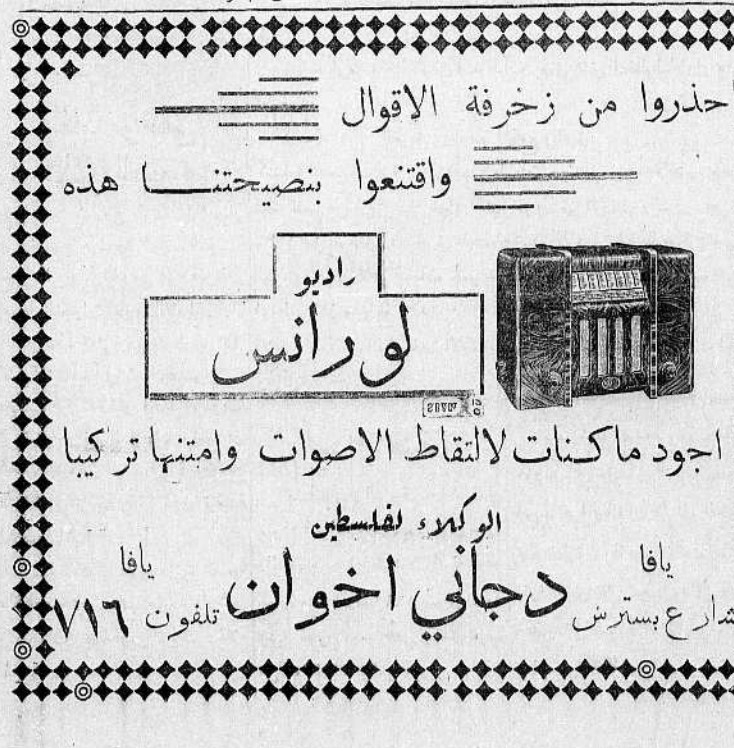 احذروا من زخرفة الاقوال
واقتنعوا بنصيحتنا هذه
راديو
لورانس
اجود ماكنات لالتقاط الاصوات وامتنها تركيبا
الوكلاء لفلسطين
دجاني اخوان
يافا
شارع بسترس
يافا
تلفون ٧١٦